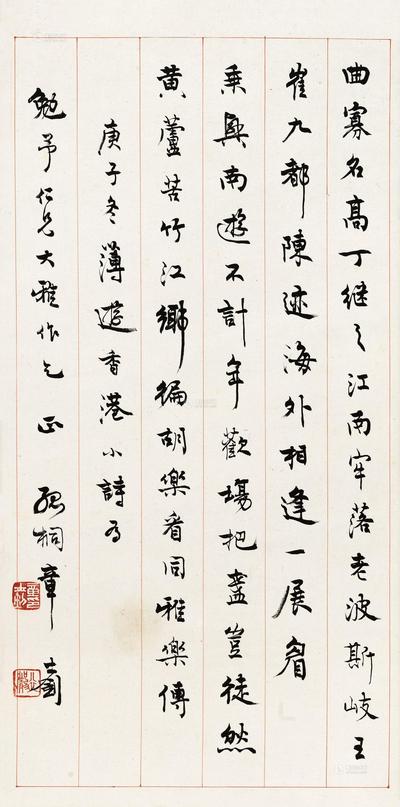 曲寡名高丁继之江南牢落老波斯岐王
崔九都陳迹海外相逢一展眉
乘興南遊不計年歡場把盞豈徒然
黄蘆苦竹江鄉徧胡樂看同雅樂傳
庚子冬薄遊香港小詩为
勉仁兄大雅作乞正 孤桐章士釗